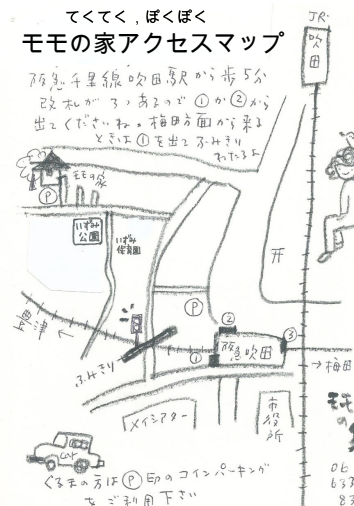 てくてく，ぽくぽく
モモの家アクセスマップ
JR
吹田
阪急千里線吹田駅から歩5分
改札が3つあるので①か②から
出てくださいね。梅田方面から来る
ときは①を出てふみきり
わたるよ
モモの家
P
いずみ
公園
いずみ
保育園
P
②
③
①
阪急吹田
豊津
←
ふみきり
→梅田
メイシアター
市役所
モモ
の
car
くるまの方はⓅ印のコインパーキング
をご利用下さい
06
633
83